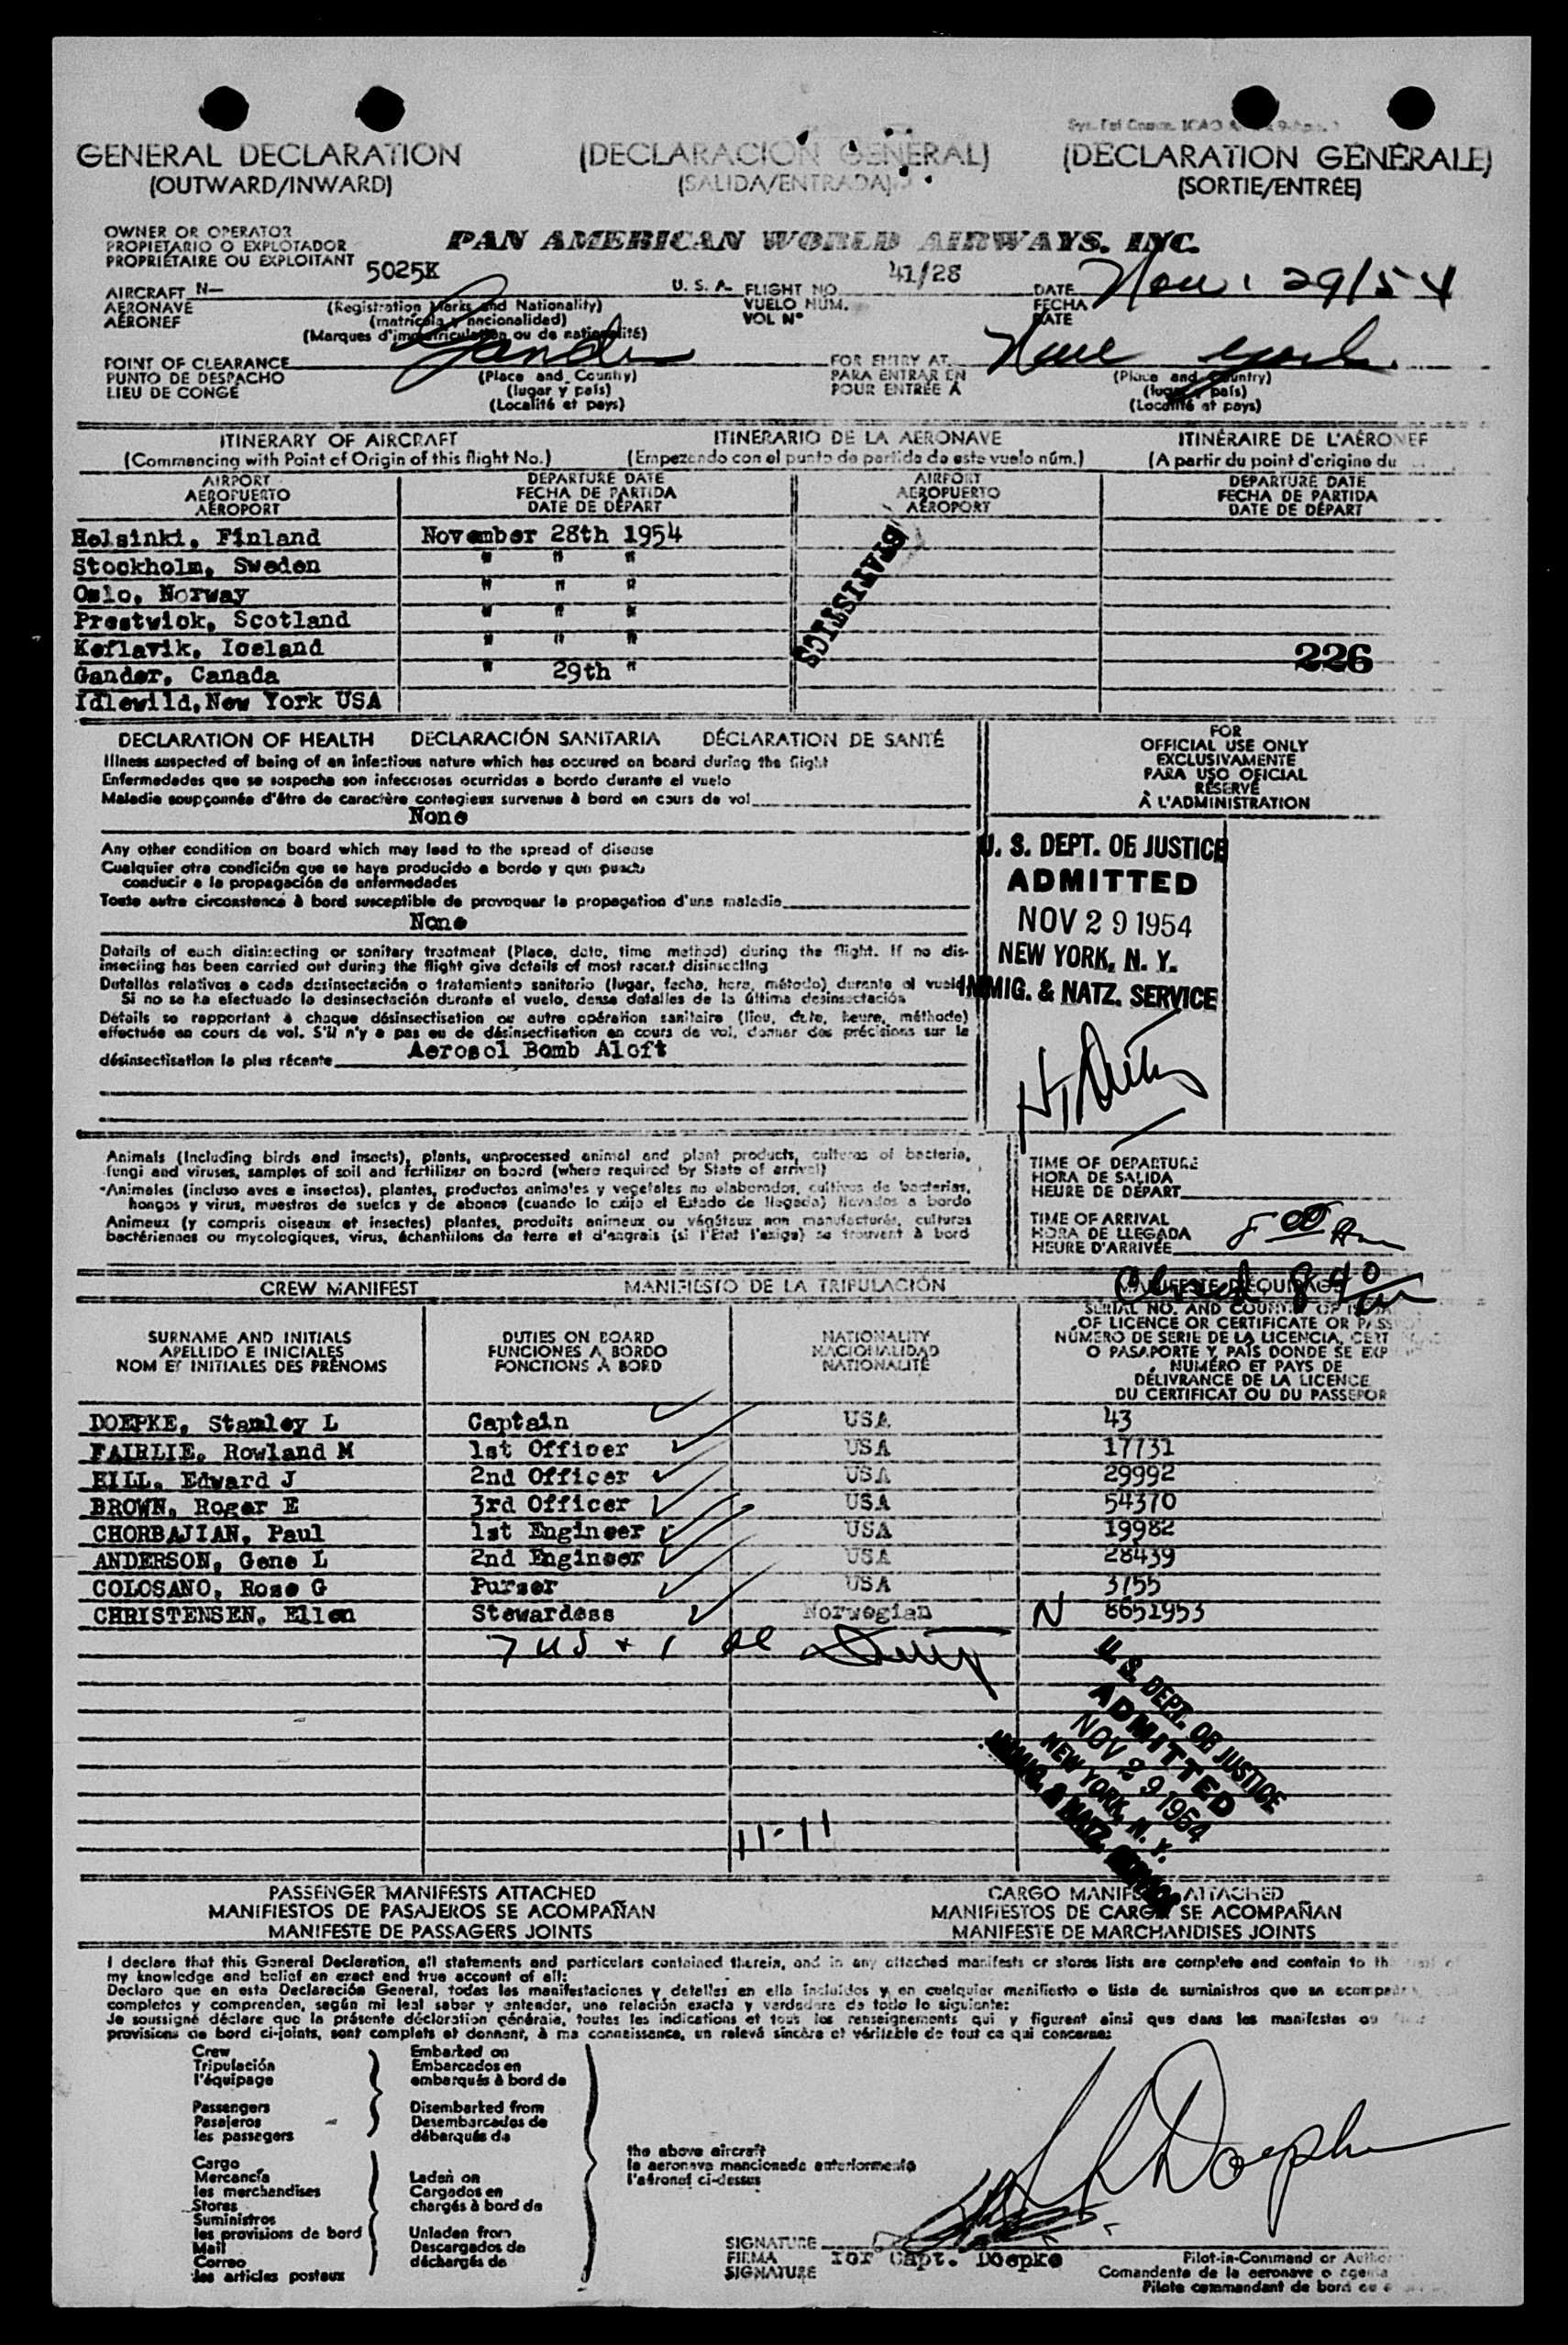 GENERAL DECLARATION (DECLARACION GENERAL) (DECLARATION GÉNÉRALE)
(OUTWARD/INWARD) (SALIDA/ENTRADA) (SORTIE/ENTRÉE)
OWNER OR OPERATOR
PROPIETARIO O EXPLOTADOR
PROPRIÉTAIRE OU EXPLOITANT
PAN AMERICAN WORLD AIRWAYS, INC.
AIRCRAFT N— 5025K U. S. A. FLIGHT NO 41/28 DATE Nov. 29/54
AERONAVE (Registration Marks and Nationality) VUELO NÚM. FECHA
AÉRONEF (matrícula y nacionalidad) VOL Nº DATE
(Marques d'immatriculation ou de nationalité)
POINT OF CLEARANCE Gander FOR ENTRY AT New York
PUNTO DE DESPACHO (Place and Country) PARA ENTRAR EN (Place and Country)
LIEU DE CONGÉ (lugar y país) POUR ENTRÉE À (lugar y país)
(Localité et pays) (Localité et pays)
ITINERARY OF AIRCRAFT ITINERARIO DE LA AERONAVE ITINÉRAIRE DE L'AÉRONEF
(Commencing with Point of Origin of this flight No.) (Empezando con el punto de partida de este vuelo núm.) (A partir du point d'origine du
AIRPORT DEPARTURE DATE AIRPORT DEPARTURE DATE
AEROPUERTO FECHA DE PARTIDA AEROPUERTO FECHA DE PARTIDA
AÉROPORT DATE DE DÉPART AÉROPORT DATE DE DÉPART
Helsinki, Finland November 28th 1954
Stockholm, Sweden " " "
Oslo, Norway " " "
Prestwick, Scotland " " "
Keflavik, Iceland " " "
Gander, Canada " 29th "
Idlewild, New York USA
STATISTICS
226
DECLARATION OF HEALTH DECLARACIÓN SANITARIA DÉCLARATION DE SANTÉ
Illness suspected of being of an infectious nature which has occured on board during the flight
Enfermedades que se sospecha son infecciosas ocurridas a bordo durante el vuelo
Maladie soupçonnée d'être de caractère contagieux survenue à bord en cours de vol
None
Any other condition on board which may lead to the spread of disease
Cualquier otra condición que se haya producido a bordo y que pueda
conducir a la propagación de enfermedades
Toute autre circonstance à bord susceptible de provoquer la propagation d'une maladie
None
Details of each disinsecting or sanitary treatment (Place, date, time method) during the flight. If no dis-
insecting has been carried out during the flight give details of most recent disinsecting
Detalles relativos a cada desinsectación o tratamiento sanitario (lugar, fecha, hora, método) durante el vuelo
Si no se ha efectuado la desinsectación durante el vuelo, dense detalles de la última desinsectación
Détails se rapportant à chaque désinsectisation ou autre opération sanitaire (lieu, date, heure, méthode)
effectuée en cours de vol. S'il n'y a pas eu de désinsectisation en cours de vol, donner des précisions sur la
désinsectisation la plus récente Aerosol Bomb Aloft
FOR
OFFICIAL USE ONLY
EXCLUSIVAMENTE
PARA USO OFICIAL
RÉSERVÉ
À L'ADMINISTRATION
U. S. DEPT. OF JUSTICE
ADMITTED
NOV 29 1954
NEW YORK, N. Y.
IMMIG. & NATZ. SERVICE
Animals (Including birds and insects), plants, unprocessed animal and plant products, cultures of bacteria,
fungi and viruses, samples of soil and fertilizer on board (where required by State of arrival)
Animales (incluso aves e insectos), plantas, productos animales y vegetales no elaborados, cultivos de bacterias,
hongos y virus, muestras de suelos y de abonos (cuando lo exija el Estado de llegada) llevados a bordo
Animaux (y compris oiseaux et insectes) plantes, produits animaux ou végétaux non manufacturés, cultures
bactériennes ou mycologiques, virus, échantillons de terre et d'engrais (si l'État l'exige) se trouvant à bord
TIME OF DEPARTURE
HORA DE SALIDA
HEURE DE DÉPART
TIME OF ARRIVAL
HORA DE LLEGADA
HEURE D'ARRIVÉE 8 00 Am
CREW MANIFEST MANIFIESTO DE LA TRIPULACIÓN MANIFESTE D'ÉQUIPAGE
SERIAL NO. AND COUNTRY OF
SURNAME AND INITIALS DUTIES ON BOARD NATIONALITY OF LICENCE OR CERTIFICATE OR PASS
APELLIDO E INICIALES FUNCIONES A BORDO NACIONALIDAD NÚMERO DE SERIE DE LA LICENCIA, CERT
NOM ET INITIALES DES PRÉNOMS FONCTIONS À BORD NATIONALITÉ O PASAPORTE Y PAÍS DONDE SE EXP
NUMÉRO ET PAYS DE
DÉLIVRANCE DE LA LICENCE
DU CERTIFICAT OU DU PASSEPOR
DOEPKE, Stanley L Captain USA 43
FAIRLIE, Rowland M 1st Officer USA 17731
HILL, Edward J 2nd Officer USA 29992
BROWN, Roger E 3rd Officer USA 54370
CHORBAJIAN, Paul 1st Engineer USA 19982
ANDERSON, Gene L 2nd Engineer USA 28439
COLOSANO, Rose G Purser USA 3755
CHRISTENSEN, Ellen Stewardess Norwegian N 8651953
7 US + 1 al
U. S. DEPT. OF JUSTICE
ADMITTED
NOV 29 1954
NEW YORK, N. Y.
IMMIG. & NATZ. SERVICE
11-11
PASSENGER MANIFESTS ATTACHED CARGO MANIFESTS ATTACHED
MANIFIESTOS DE PASAJEROS SE ACOMPAÑAN MANIFIESTOS DE CARGA SE ACOMPAÑAN
MANIFESTE DE PASSAGERS JOINTS MANIFESTE DE MARCHANDISES JOINTS
I declare that this General Declaration, all statements and particulars contained therein, and in any attached manifests or stores lists are complete and contain to the best of
my knowledge and belief an exact and true account of all:
Declaro que en esta Declaración General, todas las manifestaciones y detalles en ella incluidos y en cualquier manifiesto o lista de suministros que se acompañ
completos y comprenden, según mi leal saber y entender, una relación exacta y verdadera de todo lo siguiente:
Je soussigné déclare que la présente déclaration générale, toutes les indications et tous les renseignements qui y figurent ainsi que dans les manifestes ou
provisions de bord ci-joints, sont complets et donnent, à ma connaissance, un relevé sincère et véritable de tout ce qui concerne:
Crew Embarked on
Tripulación Embarcados en
l'équipage embarqués à bord de
Passengers Disembarked from
Pasajeros Desembarcados de
les passagers débarqués de
the above aircraft
la aeronave mencionada anteriormente
l'aéronef ci-dessus
Cargo
Mercancía Laden on
les marchandises Cargados en
Stores chargés à bord de
Suministros
les provisions de bord Unladen from
Mail Descargados de
Correo déchargés de
les articles postaux
S L Doepke
SIGNATURE
FIRMA for Capt. Doepke
SIGNATURE
Pilot-in-Command or Author
Comandante de la aeronave o agente
Pilote commandant de bord ou